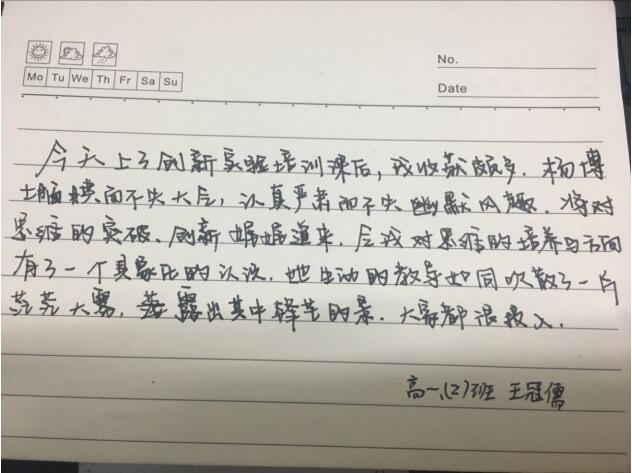 No.
Mo Tu We Th Fr Sa Su
Date
今天上了创新实验培训课后，我收获颇多．杨博
士腼腆而不失大气，认真严肃而不失幽默风趣．将对
思维的突破、创新娓娓道来．令我对思维的培养与方向
有了一个具象化的认识．她生动的教导如同吹散了一片
茫茫大雾，露出其中的景．大家都很投入．
高一、(2)班 王冠儒